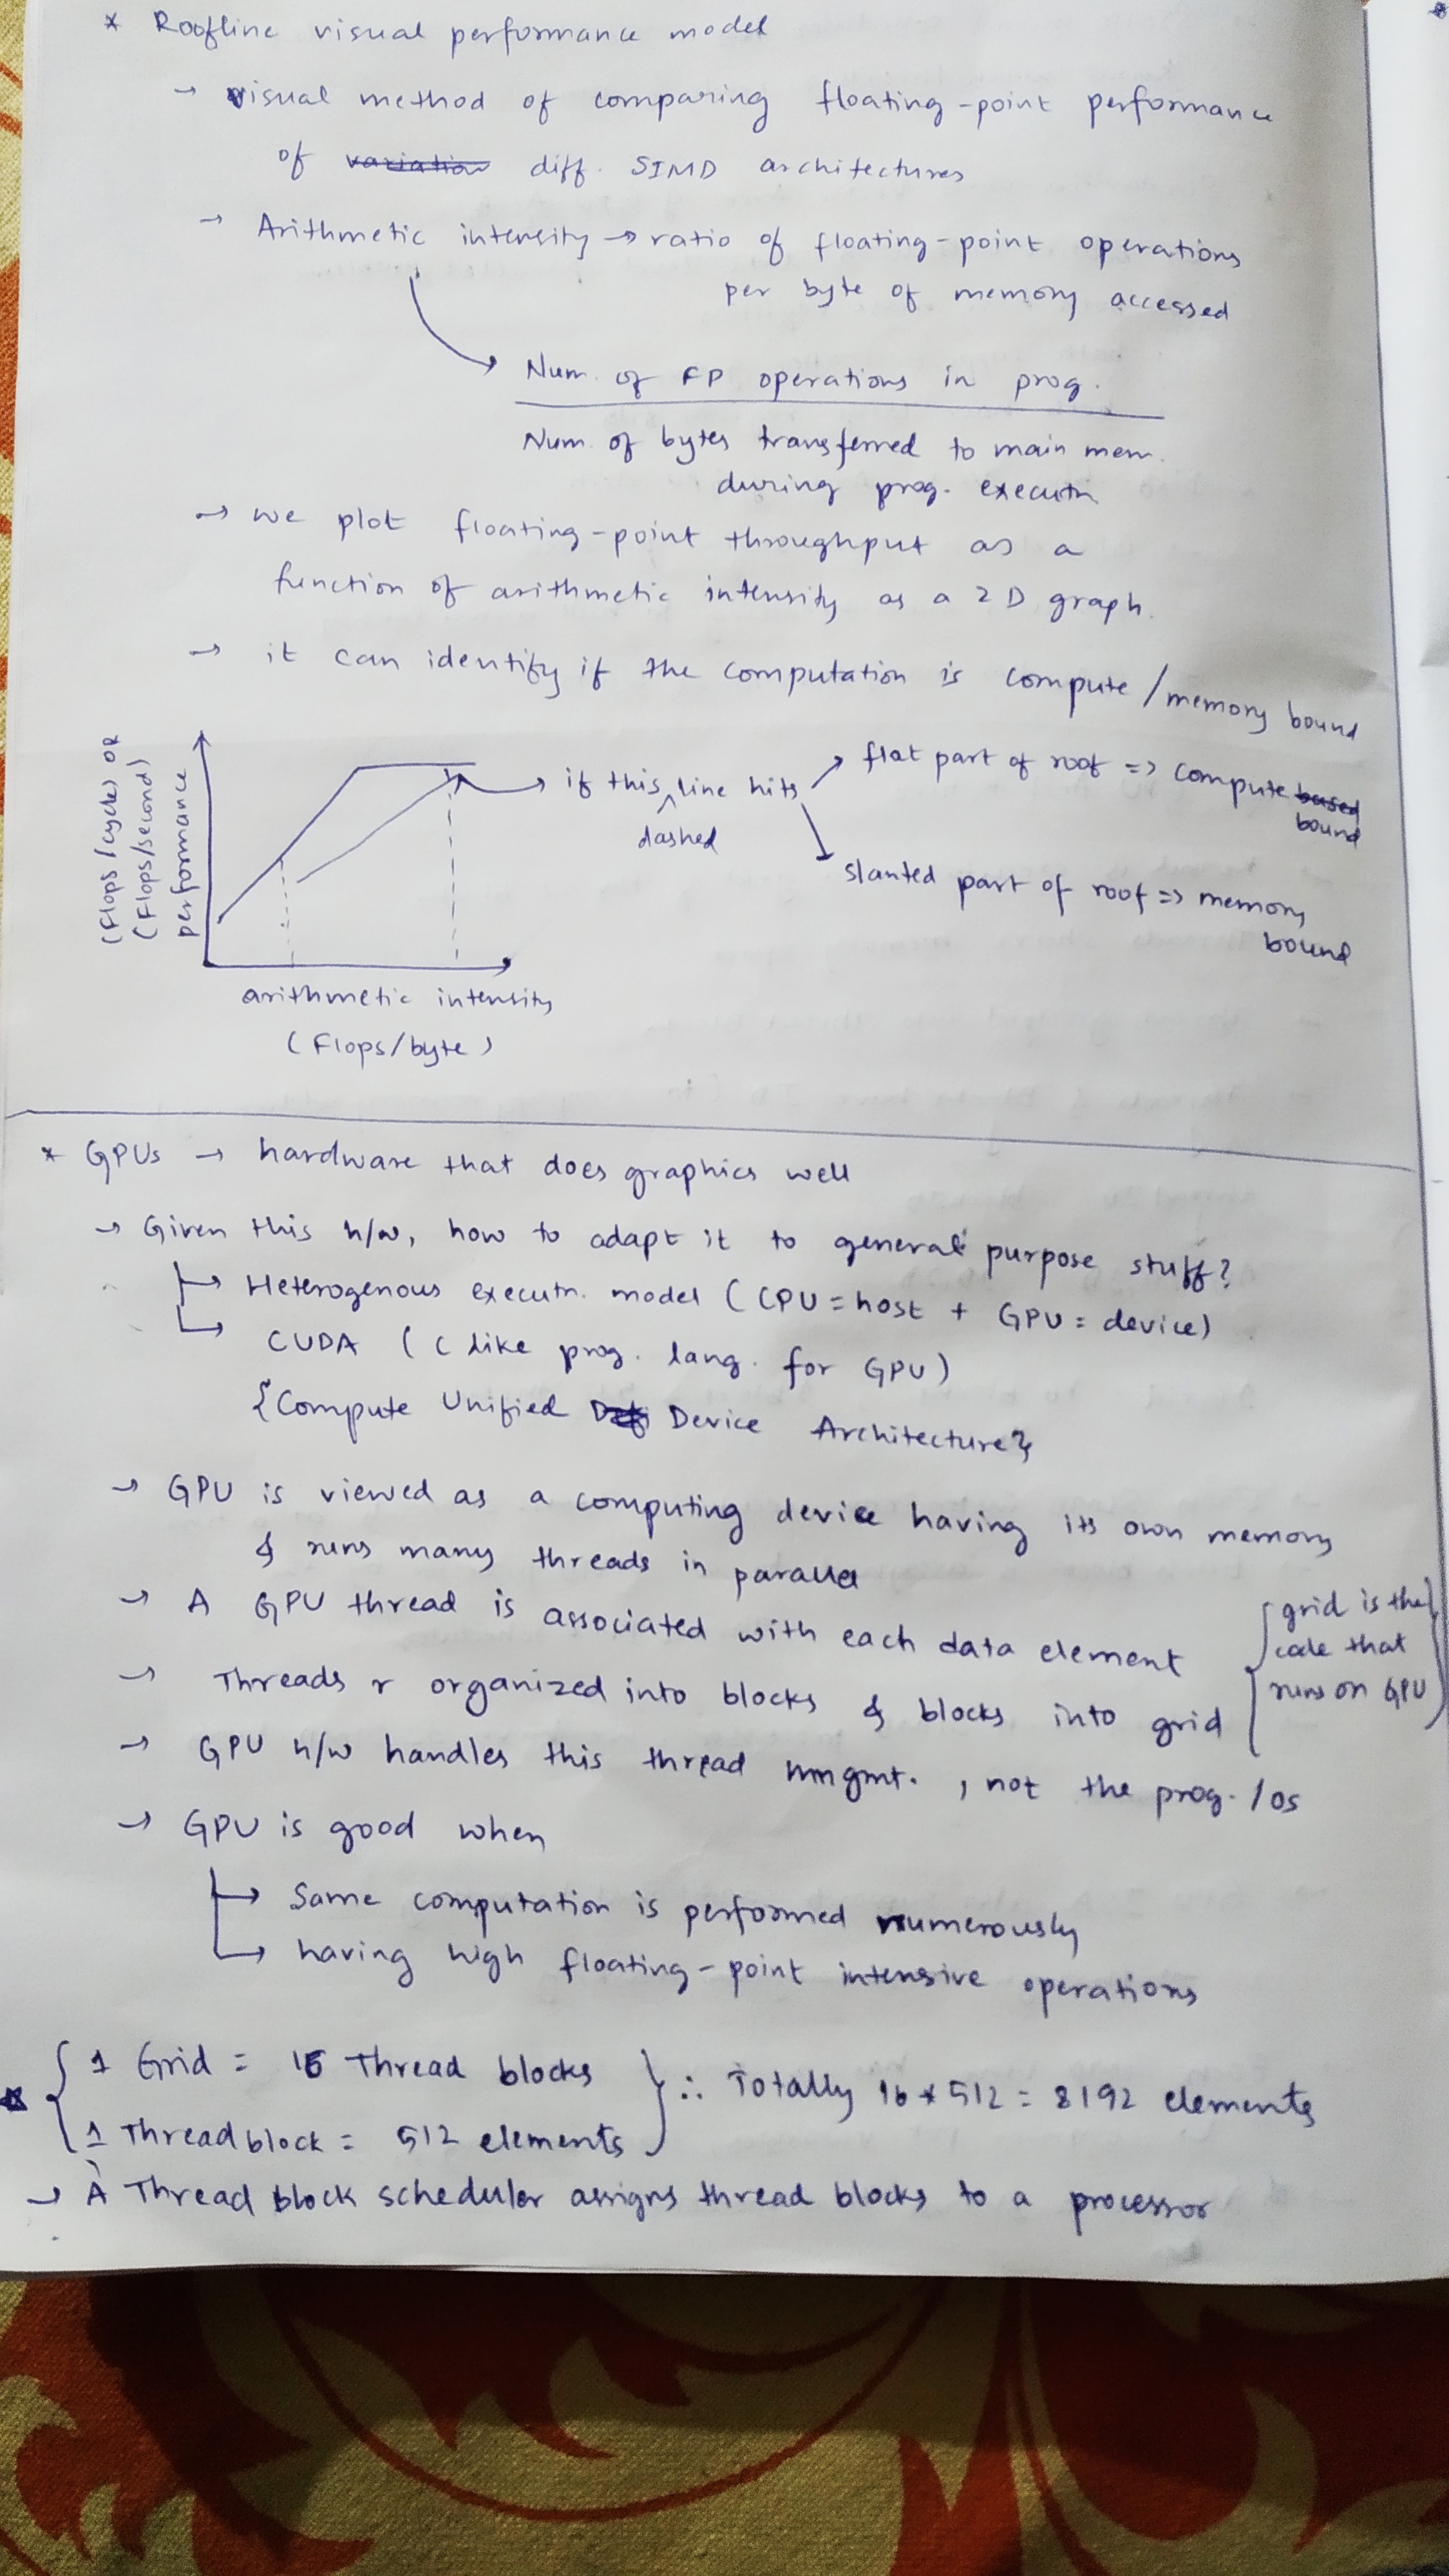 * Roofline visual performance model
→ visual method of comparing floating-point performance
of variation diff. SIMD architectures
→ Arithmetic intensity → ratio of floating-point operations
per byte of memory accessed
Num. of FP operations in prog.
Num. of bytes transferred to main mem.
during prog. executn
→ we plot floating-point throughput as a
function of arithmetic intensity as a 2D graph.
→ it can identify if the computation is compute/memory bound
(Flops/cycle) OR
(Flops/second)
performance
→ if this line hits
dashed
flat part of roof => compute based
bound
slanted part of roof => memory
bound
arithmetic intensity
(Flops/byte)
* GPUs → hardware that does graphics well
→ Given this h/w, how to adapt it to general purpose stuff?
→ Heterogenous executn. model (CPU = host + GPU = device)
→ CUDA (C like prog. lang. for GPU)
{Compute Unified Device Architecture}
→ GPU is viewed as a computing device having its own memory
& runs many threads in parallel
→ A GPU thread is associated with each data element
→ Threads r organized into blocks & blocks into grid
{grid is the
code that
runs on GPU}
→ GPU h/w handles this thread mngmt., not the prog./os
→ GPU is good when
→ Same computation is performed numerously
→ having high floating-point intensive operations
1 Grid = 16 Thread blocks
1 Thread block = 512 elements
∴ Totally 16 * 512 = 8192 elements
→ A Thread block scheduler assigns thread blocks to a processor